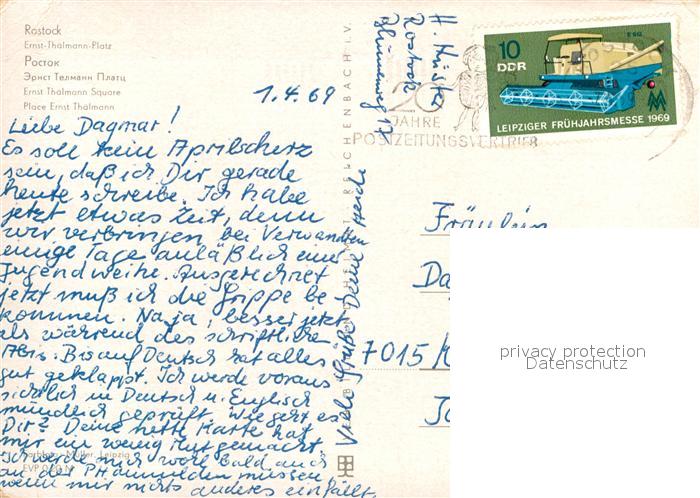 Rostock
Ernst-Thälmann-Platz
Росток
Эрнст Телманн Платц
Ernst Thälmann Square
Place Ernst Thälmann
1.4.69
Liebe Dagmar!
Es soll kein Aprilscherz
sein, daß ich Dir gerade
heute schreibe. Ich habe
jetzt etwas Zeit, denn
wir verbringen bei Verwandten
einige Tage anläßlich einer
Jugendweihe. Ausgerechnet
jetzt muß ich die Grippe be-
kommen. Na ja, besser jetzt
als während des schriftlichen
Abis. Bis auf Deutsch hat alles
gut geklappt. Ich werde voraus
sichtlich in Deutsch u. Englisch
mündlich geprüft. Wie geht es
Dir? Deine nette Karte hat
mir ein wenig Mut gemacht.
Ich werde mich wohl bald auch
an der PH anmelden müssen
wenn mir nichts anderes einfällt.
Viele Grüße Deine Heide
Müller, Leipzig
EVP 0,20 M
REICHENBACH I.V.
H. Küster
Rostock
Blumenweg 17
10
DDR
E 512
LEIPZIGER FRÜHJAHRSMESSE 1969
20
JAHRE
POSTZEITUNGSVERTRIEB
Fräulein
Da
7015/
privacy protection
Datenschutz